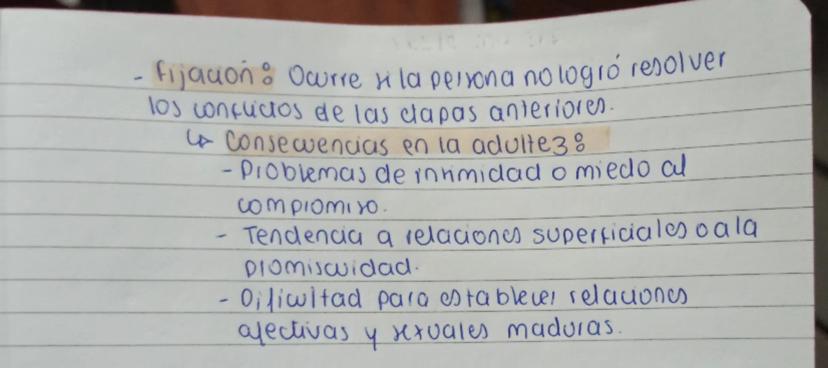 - Fijación: Ocurre si la persona no logró resolver
los conflictos de las etapas anteriores.
↳ Consecuencias en la adultez:
- Problemas de intimidad o miedo al
compromiso.
- Tendencia a relaciones superficiales o a la
promiscuidad.
- Dificultad para establecer relaciones
afectivas y sexuales maduras.